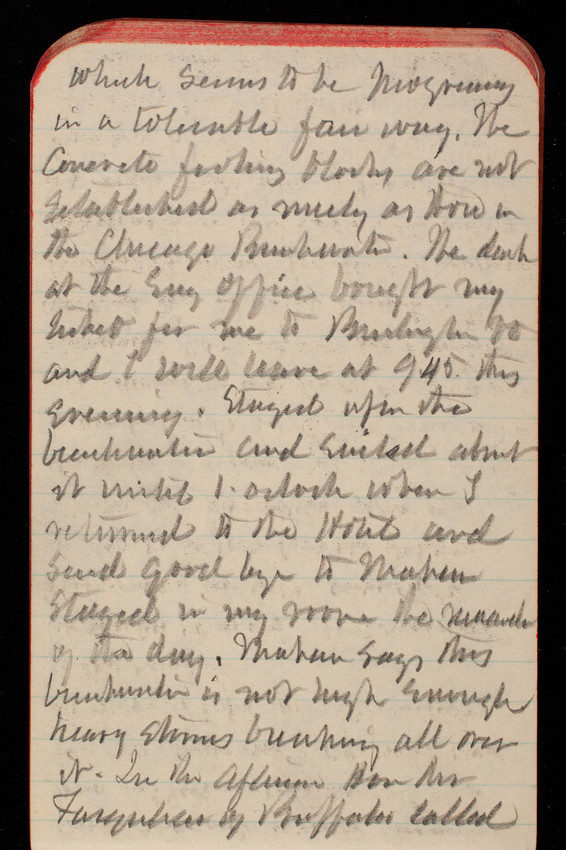 which seems to be progressing
in a tolerable fair way. The
Concrete footing blocks are not
established as nicely as those in
the Chicago Breakwater. The clerk
at the Eng Office bought my
ticket for me to Burlington
and I will leave at 945 this
evening. Stayed upon the
breakwater and sailed about
it until 1 oclock when I
returned to the Hotel and
said good bye to Mahan
Stayed in my room the remainder
of the day. Mahan says this
breakwater is not high enough
heavy storms breaking all over
it. In the afternoon
Farquhar of Buffalo called